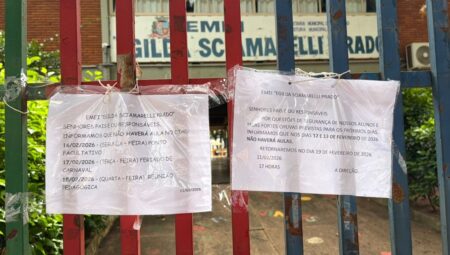 EMEI
"EGILDA SCIAMARELLI PRADO"
EMEI "EGILDA SCIAMARELLI PRADO"
SENHORES PAIS OU RESPONSÁVEIS,
INFORMAMOS QUE NÃO HAVERÁ AULA NO DIA:
16/02/2026 - (SEGUNDA - FEIRA) PONTO
FACULTATIVO
17/02/2026 - (TERÇA - FEIRA) FERIADO DE
CARNAVAL
18/02/2026 - (QUARTA - FEIRA) REUNIÃO
PEDAGÓGICA
EMEI "EGILDA SCIAMARELLI PRADO"
SENHORES PAIS E/ OU RESPONSÁVEIS
POR QUESTÕES DE SEGURANÇA DE NOSSOS ALUNOS E
FORTES CHUVAS PREVISTAS PARA OS PRÓXIMOS DIAS,
INFORMAMOS QUE NOS DIAS 12 E 13 DE FEVEREIRO DE 2026
NÃO HAVERÁ AULAS.
RETORNAREMOS NO DIA 19 DE FEVEREIRO DE 2026.
11/02/2026
17 HORAS
A DIREÇÃO.